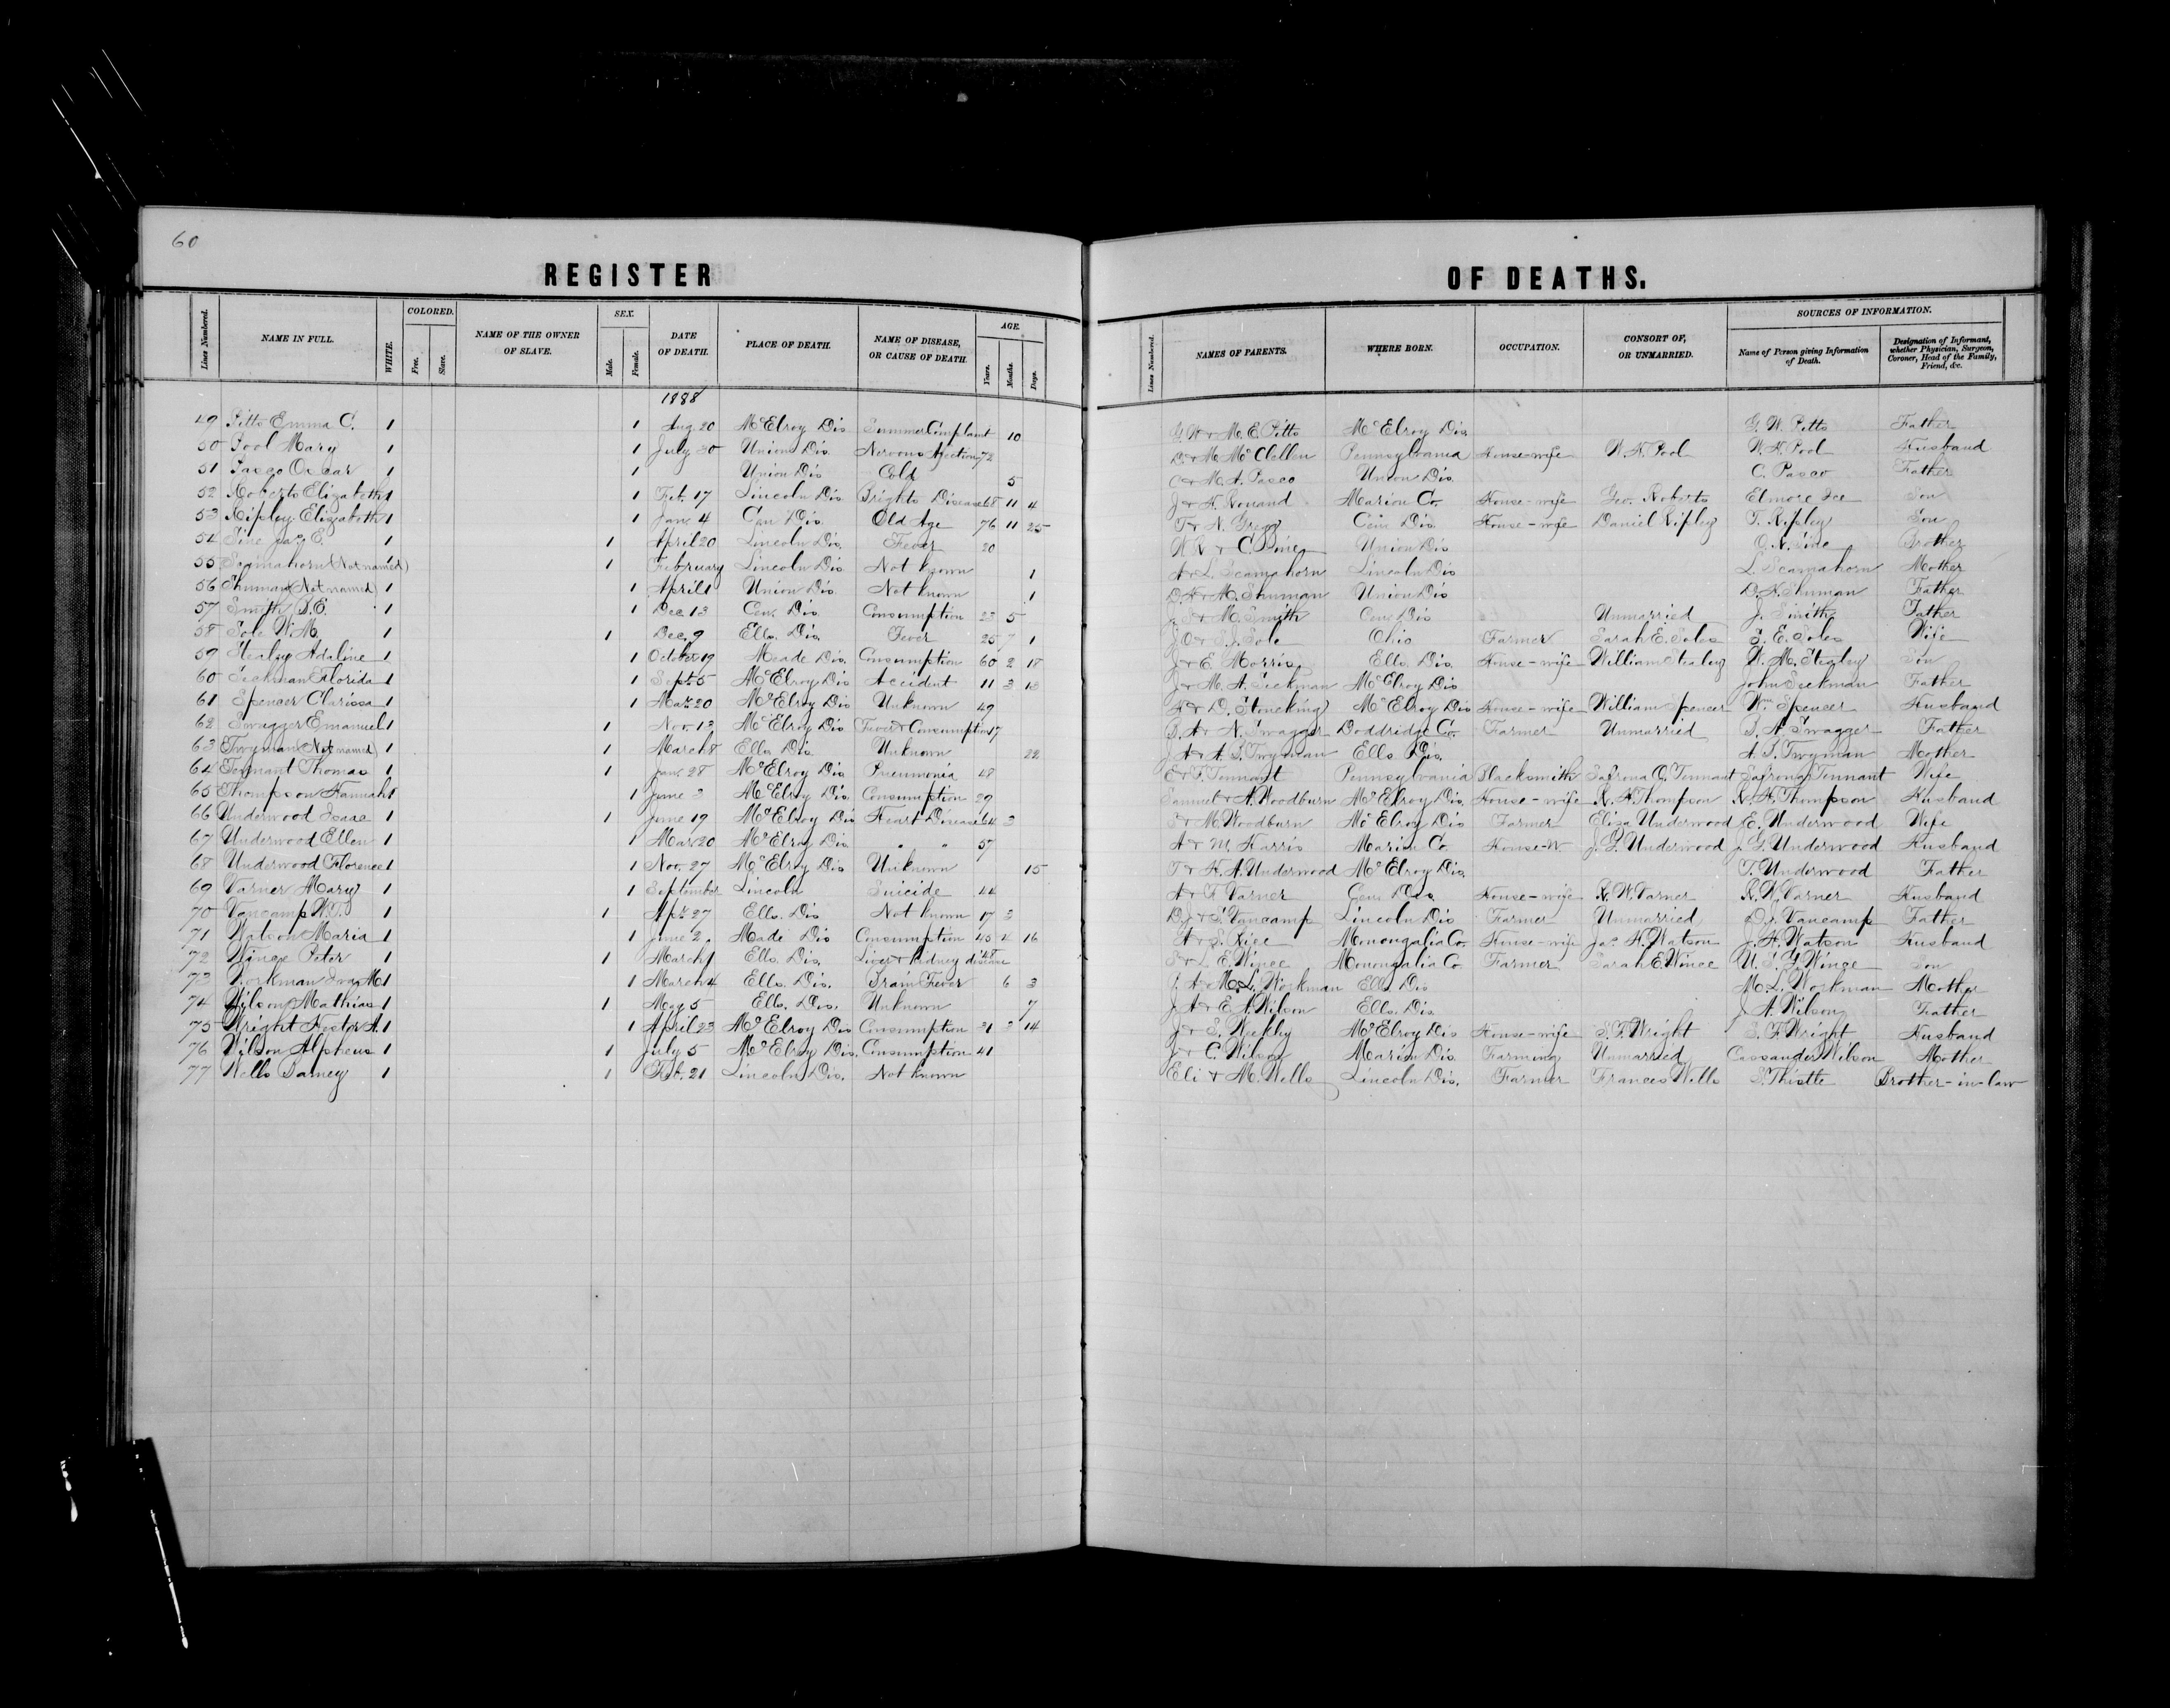 60
REGISTER OF DEATHS.
Lines Numbered. NAME IN FULL. WHITE. COLORED. Free. Slave. NAME OF THE OWNER OF SLAVE. SEX. Male. Female. DATE OF DEATH. PLACE OF DEATH. NAME OF DISEASE, OR CAUSE OF DEATH. AGE. Years. Months. Days. Lines Numbered. NAMES OF PARENTS. WHERE BORN. OCCUPATION. CONSORT OF, OR UNMARRIED. SOURCES OF INFORMATION. Name of Person giving Information of Death. Designation of Informant, whether Physician, Surgeon, Coroner, Head of the Family, Friend, &c.
1888
49 Pitts Emma C. 1 1 Aug 20 McElroy Dis Summer Complaint 10 G. W. & M. E. Pitts McElroy Dis. G. W. Pitts Father
50 Pool Mary 1 1 July 30 Union Dis. Nervous Afection 72 & M. McClellen Pennsylvania House-wife W. H. Pool W. H. Pool Husband
51 Pasco Oscar 1 1 Union Dis Cold 5 C & M. A. Pasco Union Dis. C. Pasco Father
52 Roberts Elizabeth 1 1 Feb. 17 Lincoln Dis. Brights Disease 68 11 4 Marion Co. House-wife Geo. Roberts Elmore Ice Son
53 Ripley Elizabeth 1 1 June 4 Cen Dis. Old Age 76 11 25 T & N. Gregg Cen Dis. House-wife Daniel Ripley T. Ripley Son
54 Pine Jas. E. 1 1 April 20 Lincoln Dis. Fever 20 W R & C. Pine Union Dis Brother
55 Scamahorn (Not named) 1 1 February Lincoln Dis Not known 1 A & L. Scamahorn Lincoln Dis L. Scamahorn Mother
56 Shuman (Not named) 1 1 April 1 Union Dis. Not known 1 D. H & M. Shuman Union Dis D. H. Shuman Father
57 Smith S. E. 1 1 Dec 13 Cen. Dis. Consumption 23 5 & M. Smith Cen. Dis Unmarried J. Smith Father
58 Sole W. M. 1 1 Dec. 9 Ells. Dis. Fever 25 7 1 J. O & S. J. Sole Ohio Farmer Sarah E. Soles S. E. Soles Wife
59 Stealey Adaline 1 1 October 19 Meade Dis. Consumption 60 2 18 J & E. Morris Ells. Dis. House-wife William Stealey W. M. Stealey Son
60 Seckman Florida 1 1 Sept. 5 McElroy Dis Accident 11 3 13 J & M. A. Seckman McElroy Dis John Seckman Father
61 Spencer Clarissa 1 1 Mar. 20 McElroy Dis Unknown 49 & D. Stoneking McElroy Dis House-wife William Spencer Wm Spencer Husband
62 Swagger Emanuel 1 1 Nov. 13 McElroy Dis Fever & Consumption 17 B. A & N. Swagger Doddridge Co. Farmer Unmarried B. A. Swagger Father
63 Twyman (Not named) 1 1 March 8 Ells Dis. Unknown 22 J A & A. S. Twyman Ells Dis. A. S. Twyman Mother
64 Tennant Thomas 1 1 Jan. 28 McElroy Dis Pneumonia 48 Tennant Pennsylvania Blacksmith Safrona C. Tennant Safrona Tennant Wife
65 Thompson Hannah 1 1 June 3 McElroy Dis. Consumption 29 Samuel & A. Woodburn McElroy Dis. House-wife R. H. Thompson R. H. Thompson Husband
66 Underwood Isaac 1 1 June 19 McElroy Dis Heart Disease 64 3 & M. Woodburn McElroy Dis Farmer Eliza Underwood E. Underwood Wife
67 Underwood Ellen 1 1 Mar 20 McElroy Dis. " " 57 A & M. Harris Marion Co. House-W J. G. Underwood J. G. Underwood Husband
68 Underwood Florence 1 1 Nov. 27 McElroy Dis Unknown 15 T & H. A. Underwood McElroy Dis. T. Underwood Father
69 Varner Mary 1 1 September Lincoln Suicide 44 Varner Cen. Dis. House-wife R. W. Varner R. W. Varner Husband
70 Vancamp W. T. 1 1 Apr. 27 Ells. Dis Not known 17 3 D. J & S. Vancamp Lincoln Dis Farmer Unmarried D. J. Vancamp Father
71 Watson Maria 1 1 June 2. Meade Dis Consumption 45 4 16 A & S. Rice Monongalia Co. House-wife Jas. H. Watson J. H. Watson Husband
72 Wince Peter 1 1 March 1 Ells. Dis. Liver & Kidney disease 48 & L. E. Wince Monongalia Co Farmer Sarah E. Wince U. S. G. Wince Son
73 Workman Iva M. 1 1 March 4 Ells. Dis. Brain Fever 6 3 J. A & M. L. Workman Ells Dis M. L. Workman Mother
74 Wilson Mathias 1 1 May 5 Ells. Dis. Unknown 7 J A & E. A. Wilson Ells. Dis J. A. Wilson Father
75 Wright Hester A. 1 1 April 23 McElroy Dis Consumption 31 3 14 J & S. Weekley McElroy Dis House-wife S. F. Wright S. F. Wright Husband
76 Wilson Alpheus 1 1 July 5 McElroy Dis. Consumption 41 J & C. Wilson Marion Dis Farming Unmarried Cassander Wilson Mother
77 Wells Barney 1 1 Feb. 21 Lincoln Dis. Not known Eli & M. Wells Lincoln Dis. Farmer Frances Wells S. Thistle Brother-in-law